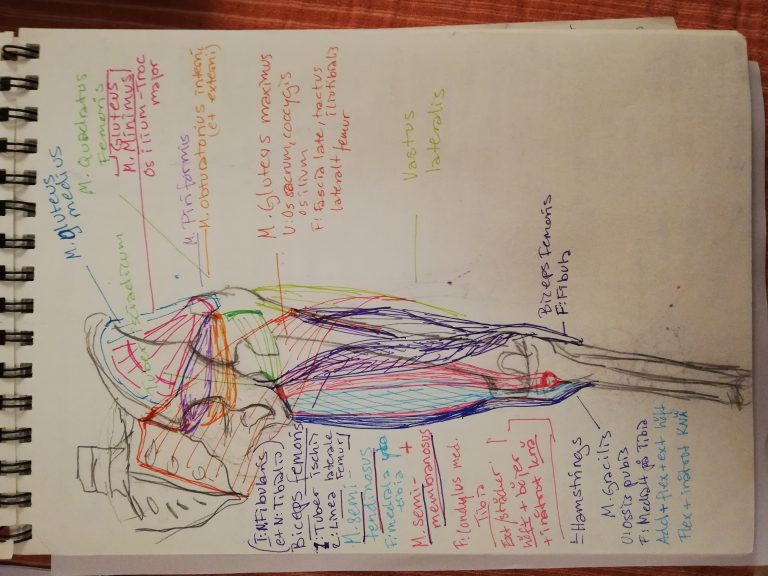 M. Gluteus
medius
M. Quadratus
Femoris
Gluteus
M. Minimus
Os ilium - Troc
major
M. Piriformis
M. Obturatorius interni
(et externi)
M. Gluteus maximus
U: Os sacrum, coccygis
os ilium
F: Fascia late, tractus
iliotibialis
lateralt femur
Vastus
lateralis
Tuber ischiadicum
Biceps femoris
F: Fibula
(1: N Fibularis
et N: Tibialis)
Biceps femoris
1: Tuber ischii
2: Linea laterale
Femur
M. semi-
tendinosus
F: mediala
tibia
M. semi- +
membranosus
F: Condylus med.
Tibia
Ext/sträcker
höft + böjer
+ inåtrot knä
= Hamstrings
M. Gracilis
U: ossis pubis
F: Medialt på Tibia
Add + flex + ext höft
Flex + inåtrot Knä